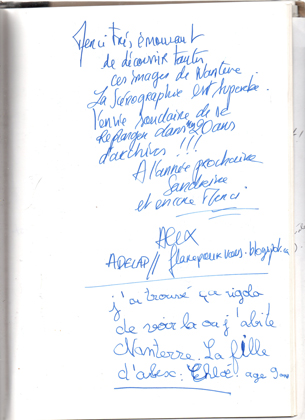 Merci très émouvant
de découvrir toutes
ces images de Nanterre.
La Scénographie est superbe.
l'envie soudaine de se
replonger dans 20 ans
d'archives !!!
A l'année prochaine
Sandrine
et encore Merci
Alex
ADELAP//
j'ai trouvé que rigola
de voir la ou j'abite
Nanterre. La fille
d'alex: Chloé age 9 ans